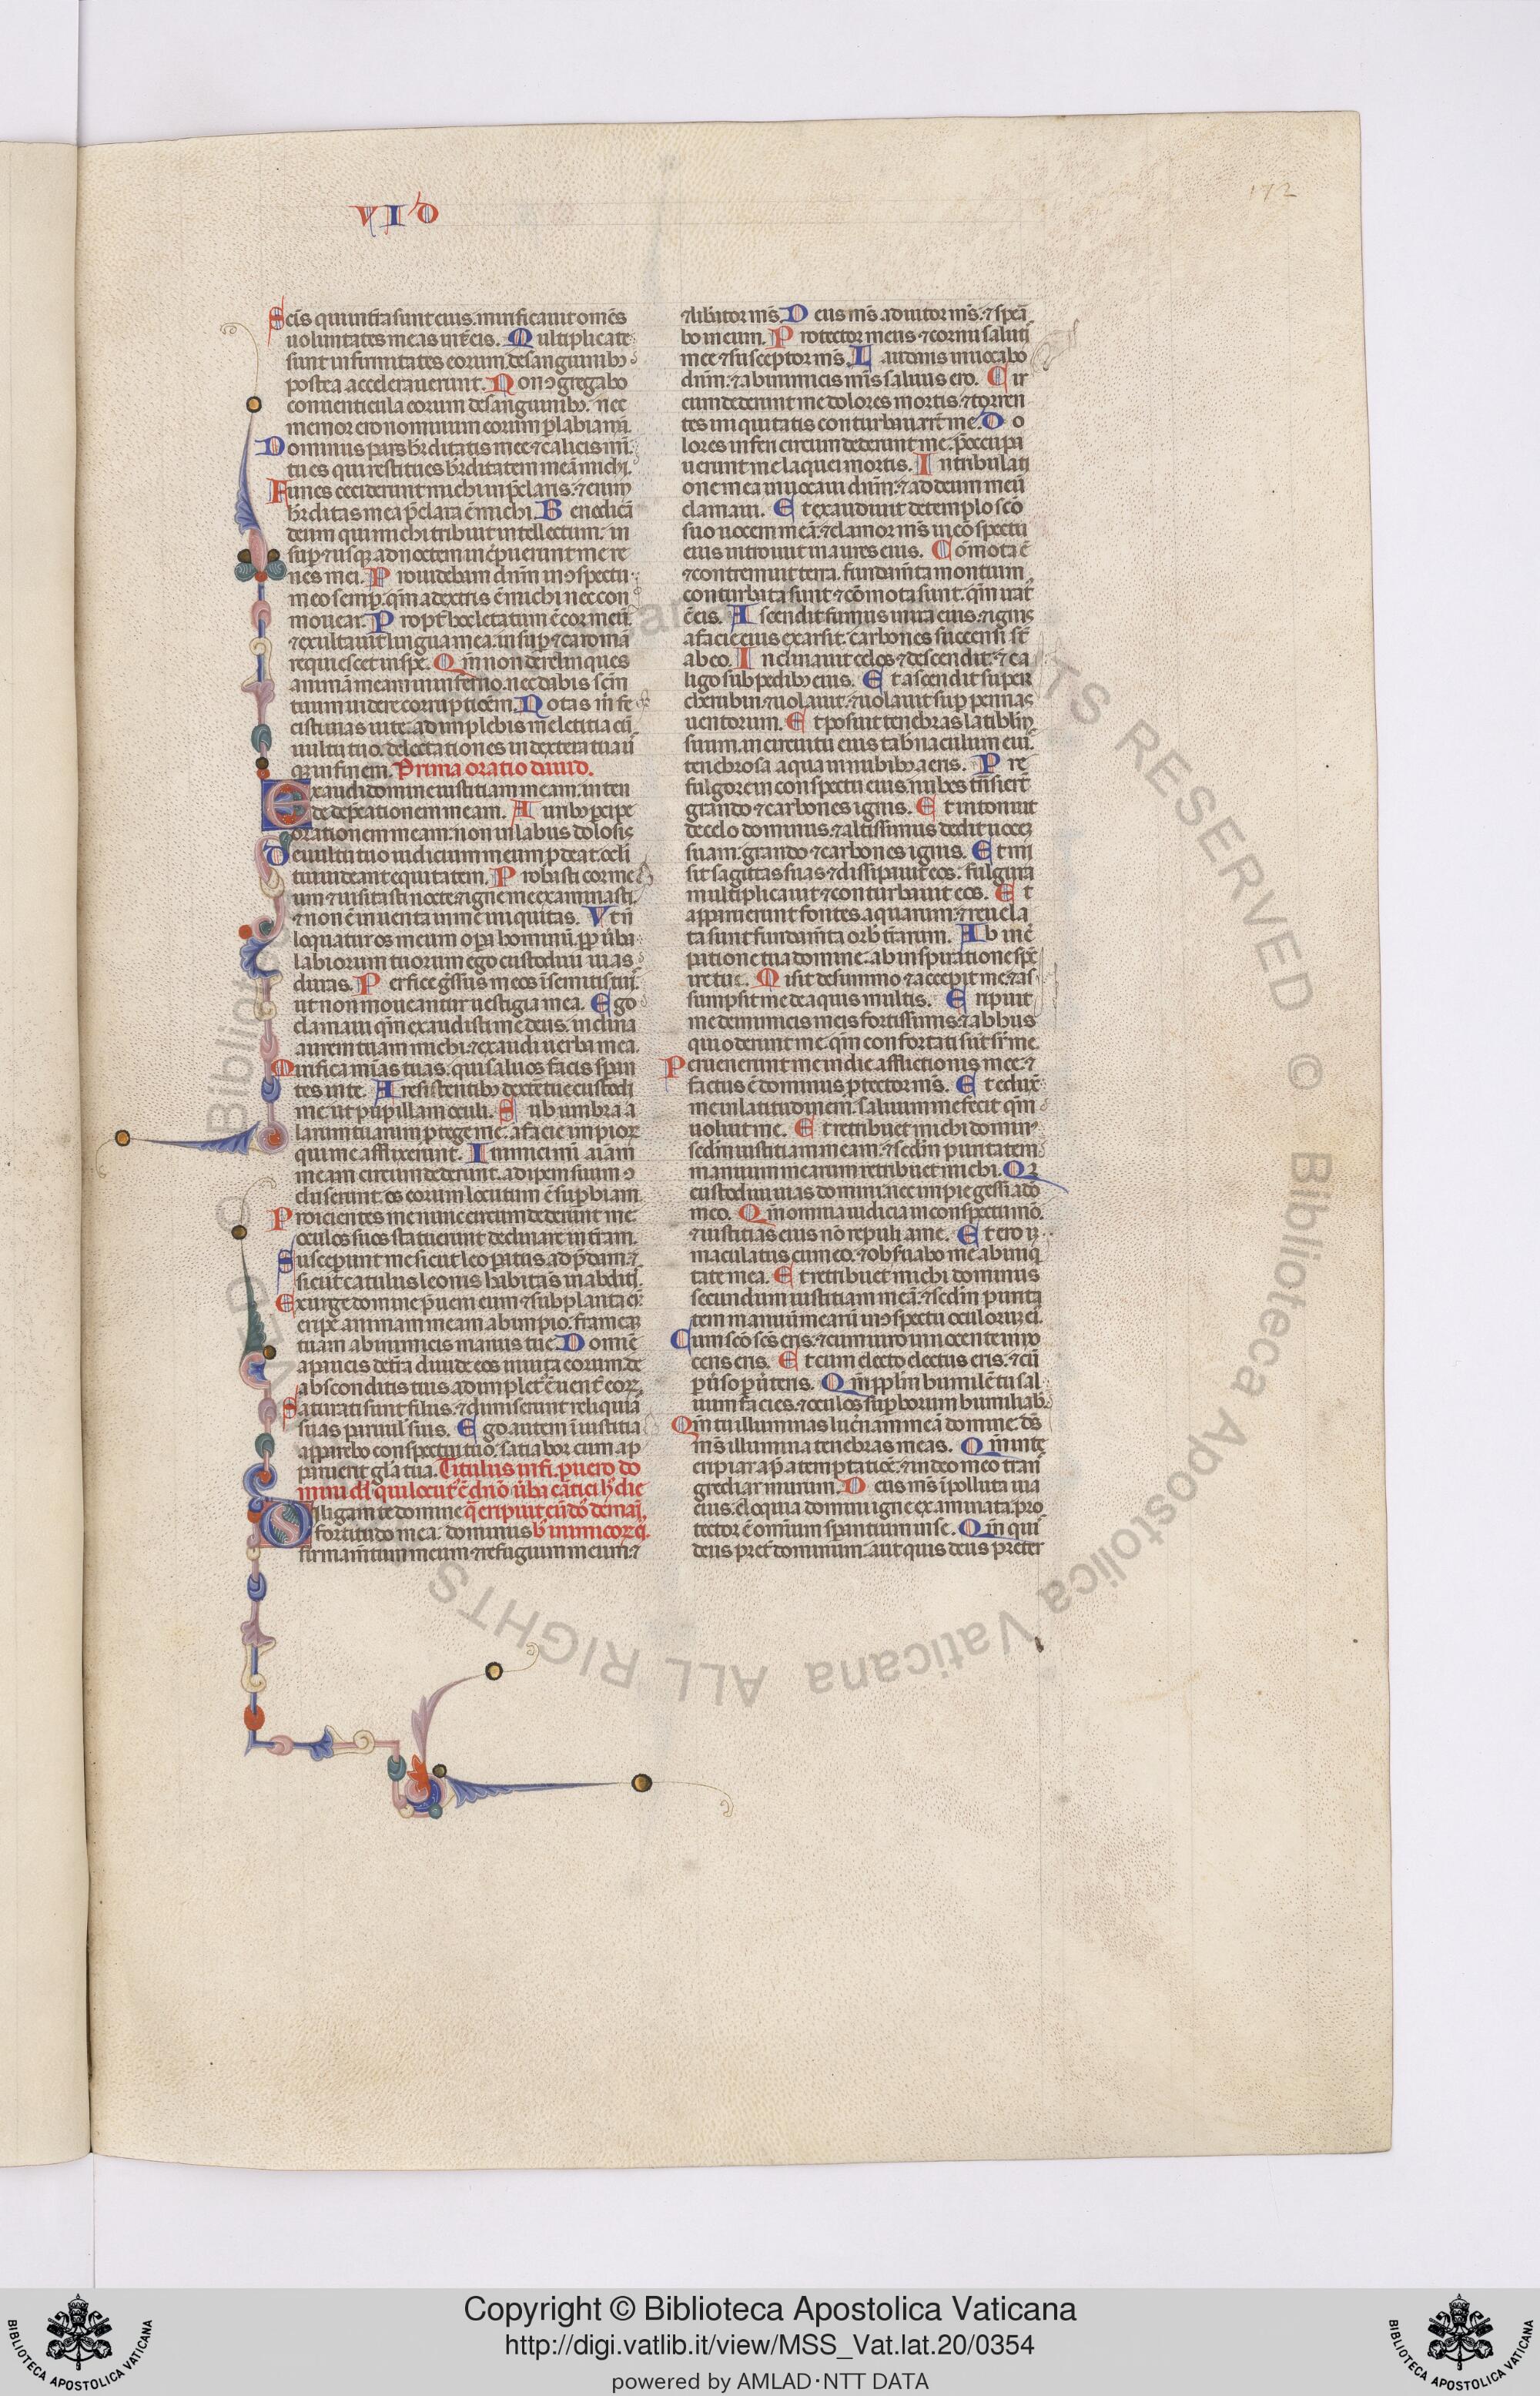 VID
172
Scis qui in tra sunt eius. mirificauit omēs
uoluntates meas in eis. Multiplicate
sunt infirmitates eorum. de sanguinibꝫ
postea accelerauerunt. Non ꝯgregabo
conuenticula eorum de sanguinibꝫ. nec
memor ero nominum eorum p labia mā.
Dominus pars hrditatis mee ⁊ calicis mi.
tu es qui restitues hrditatem meā michi.
Funes ceciderunt michi in pclaris. ⁊ enim
hrditas mea pclara ē michi. Benedicā
deum qui michi tribuit intellectum. in
sup ⁊ usqꝫ ad noctem increpuerunt me re
nes mei. Prouidebam dnm in ꝯspectu
meo semp. qm a dextris ē michi nec con
mouear. Propt hoc letatum ē cor meū.
⁊ exultauit lingua mea. insup ⁊ caro mā
requiescet in spe. Qm non derelinques
animā meam in inferno. nec dabis scm
tuum uidere corruptioem. Notas m fe
cisti uias uite. adimplebis me letitia cū
uultu tuo. delectationes in dextera tua u
qꝫ in finem. Prima oratio dauid.
Exaudi domine iustitiam meam. inten
de depcationem meam. Auribꝫ pcipe
orationem meam. non in labiis dolosis
De uultu tuo iudicium meum pdeat. ocli
tui uideant equitatem. Probasti cor me
um ⁊ uisitasti nocte. igne me examinasti.
⁊ non ē inuenta in me iniquitas. Vt n̄
loquatur os meum opa hominū. pp uba
labiorum tuorum ego custodiui uias
duras. Perfice gssus meos ī semitis tuī.
ut non moueantur uestigia mea. Ego
clamaui qm exaudisti me deus. inclina
aurem tuam michi ⁊ exaudi uerba mea.
Mirifica mīas tuas. qui saluos facis span
tes in te. A resistentibꝫ dextere tue custodi
me. ut pupillam oculi. Sub umbra a
larum tuarum ptege me. a facie impioꝝ
qui me afflixerunt. Inimici mī aīam
meam circumdederunt. adipem suum ꝯ
cluserunt. os eorum locutum ē supbiam
Proicientes me nunc circumdederunt me.
oculos suos statuerunt declinare in tram.
Susceperunt me sicut leo paratus ad pdam. ⁊
sicut catulus leonis habitās in abditis.
Exurge domine pueni eum ⁊ subplanta eū.
eripe animam meam ab impio. frameaꝫ
tuam ab inimicis manus tue. Domiē
a paucis de tra diuide eos in uita eorum. de
absconditis tuis adimplet' ē uent' eoꝝ.
Saturati sunt filiis. ⁊ dimiserunt reliquia
suas paruul suis. Ego autem ī iustitia
apparebo conspectui tuo. satiabor cum ap
paruerit gla tua. Titulus in fi. puero do
mini dd. qui locut' ē dno uba cātici h' die
Diligam te domine q̄ eripuit eū do de man,
fortitudo mea. dominus h' inimicoꝝ
firmamtum meum ⁊ refugium meum. ⁊
⁊ libator ms. Deus ms adiutor ms. ⁊ spea
bo in eum. Protector meus ⁊ cornu saluti
mee ⁊ susceptor ms. Laudans inuocabo
dnm. ⁊ ab inimicis mis saluus ero. Cir
cumdederunt me dolores mortis. ⁊ torren
tes iniquitatis conturbauert me. Do
lores inferi circumdederunt me. p̄occupa
uerunt me laquei mortis. In tribulati
one mea inuocaui dnm. ⁊ ad deum meū
clamaui. Et exaudiuit de templo scō
suo uocem meā. ⁊ clamor ms in cōspectu
eius introiuit in aures eius. Cōmota ē
⁊ contremuit terra. fundamta montium
conturbata sunt ⁊ cōmota sunt. qm irat
ē eis. Ascendit fumus in ira eius. ⁊ ignis
a facie eius exarsit. carbones succensi st
ab eo. Inclinauit celos ⁊ descendit. ⁊ ca
ligo sub pedibꝫ eius. Et ascendit super
cherubin ⁊ uolauit. ⁊ uolauit sup pennas
uentorum. Et posuit tenebras latiblm
suum. in circuitu eius tabnaculum eiu.
tenebrosa aqua in nubibꝫ aeris. Pre
fulgore in conspectu eius nubes tnsiert
grando ⁊ carbones ignis. Et intonuit
de celo dominus. ⁊ altissimus dedit uoceꝫ
suam. grando ⁊ carbones ignis. Et mi
sit sagittas suas ⁊ dissipauit eos. fulgura
multiplicauit ⁊ conturbauit eos. Et
apparuerunt fontes aquarum. ⁊ reuela
ta sunt fundamta orb trarum. Ab incre
patione tua domine. ab inspiratione spc
ire tue. Misit de summo ⁊ accepit me. ⁊ as
sumpsit me de aquis multis. Eripuit
me de inimicis meis fortissimis. ⁊ ab hiis
qui oderunt me. qm confortati sut sr me.
Peruenerunt me in die afflictionis mee. ⁊
factus ē dominus ptector ms. Et eduxᵗ
me in latitudinem. saluum me fecit qm
uoluit me. Et retribuet michi domin'
sedm iustitiam meam. ⁊ sedm puritatem
manuum mearum retribuet michi. Qꝛ
custodiui uias domini. nec impie gessi a dō
meo. Qm omnia iudicia in conspectu mō.
⁊ iustitias eius nō repuli a me. Et ero ī
maculatus cum eo. ⁊ obsuabo me ab iniq
tate mea. Et retribuet michi dominus
secundum iustitiam meā. ⁊ sedm purita
tem manuū mearū in ꝯspectu oculoruꝫ ei.
Cum scō scs eris. ⁊ cum uiro innocente inno
cens eris. Et cum electo electus eris. ⁊ cū
puso puteris. Qm pplm humilē tu sal
uum facies. ⁊ oculos supborum humiliab.
Qm tu illuminas lucnam meā domine. ds
ms illumina tenebras meas. Qm in te
eripiar a temptatioē. ⁊ in deo meo tran
grediar murum. Deus ms ī polluta uia
eius. eloquia domini igne examinata. pro
tector ē omium spantium in se. Qm qui
deus pret dominum. aut quis deus preter
Copyright © Biblioteca Apostolica Vaticana
http://digi.vatlib.it/view/MSS_Vat.lat.20/0354
powered by AMLAD·NTT DATA